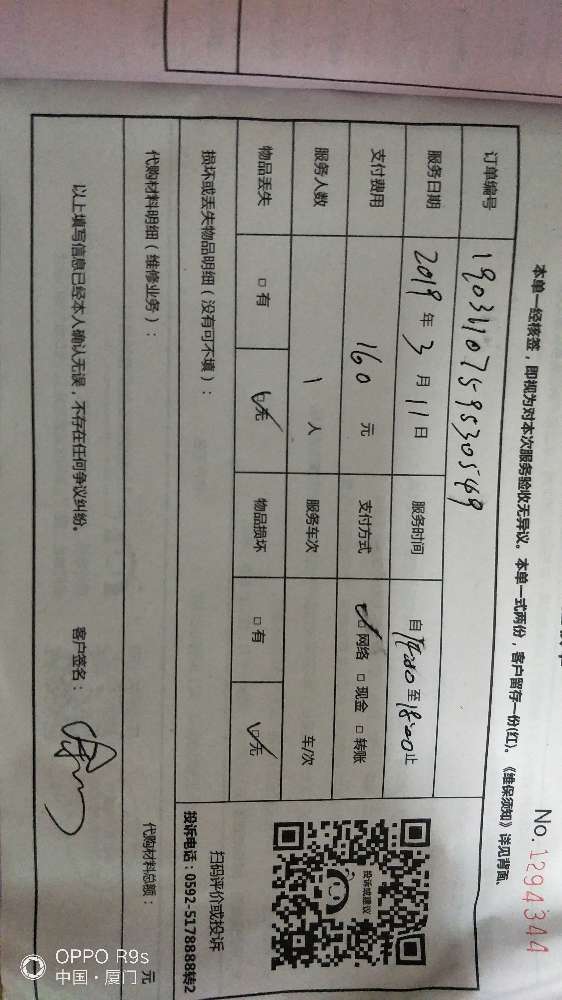 No.1294344
本单一经核签,即视为对本次服务验收无异议。本单一式两份,客户留存一份(红)。《维保须知》详见背面。
订单编号 1903110759530549
服务日期 2019年3月11日 服务时间 自14:00至18:00止
支付费用 160元 支付方式 ☑网络 □现金 □转账
服务人数 1人 服务车次 车/次
物品丢失 □有 ☑无 物品损坏 □有 ☑无
损坏或丢失物品明细(没有可不填):
扫码评价或投诉
投诉电话:0592-5178888转2
投诉或建议
代购材料明细(维修业务):
代购材料总额: 元
以上填写信息已经本人确认无误,不存在任何争议纠纷。 客户签名:
OPPO R9s
中国·厦门